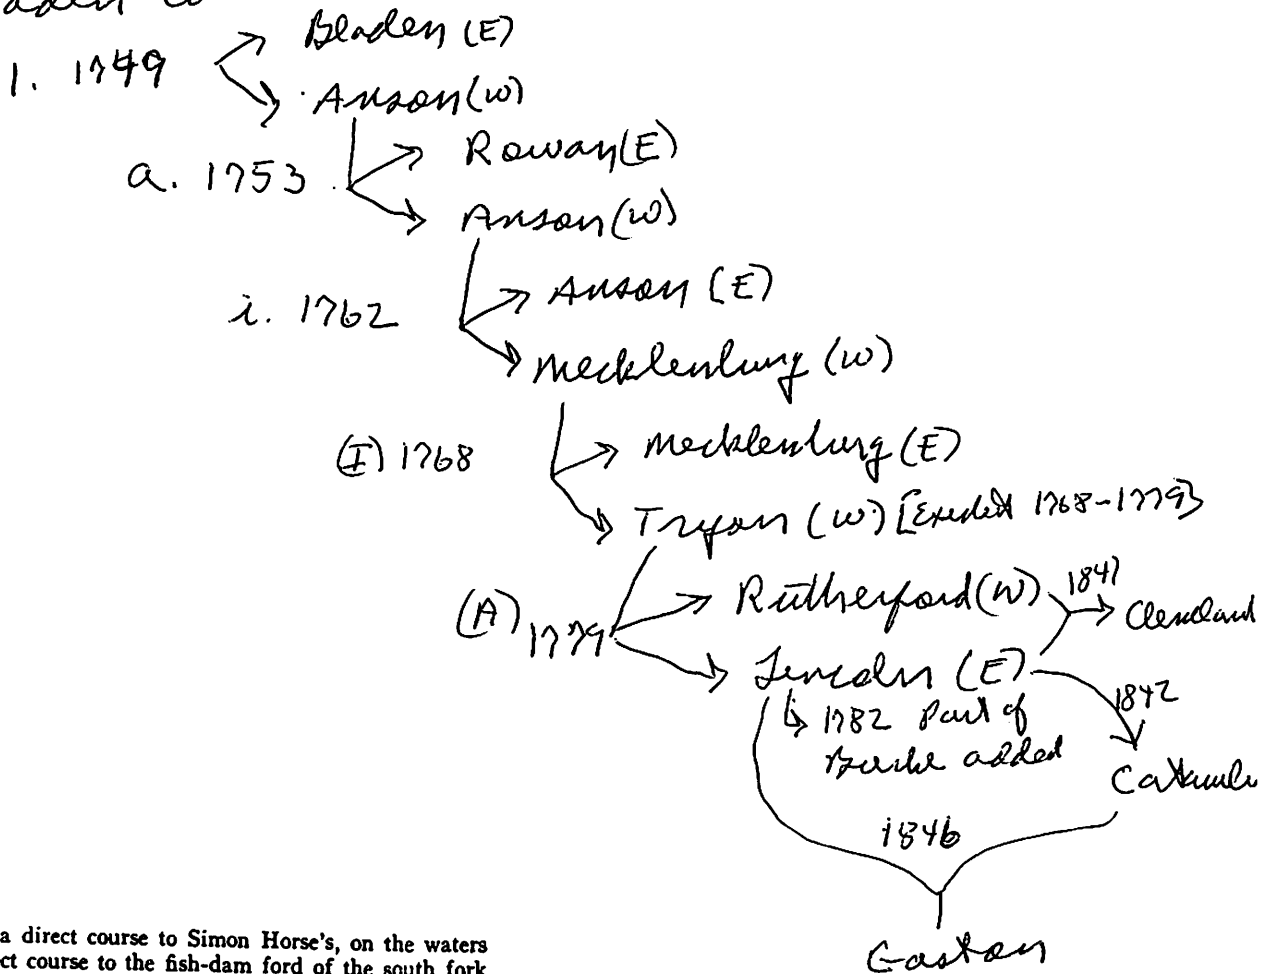 1. 1749
Bladen (E)
Anson (W)
a. 1753
Rowan (E)
Anson (W)
i. 1762
Anson (E)
Mecklenburg (W)
(I) 1768
Mecklenburg (E)
Tryon (W) [Existed 1768-1779]
(A) 1779
Rutherford (W)
1841
Cleveland
Lincoln (E)
1842
1782 Part of
Burke added
Catawba
1846
Gaston
a direct course to Simon Horse's, on the waters
ct course to the fish-dam ford of the south fork